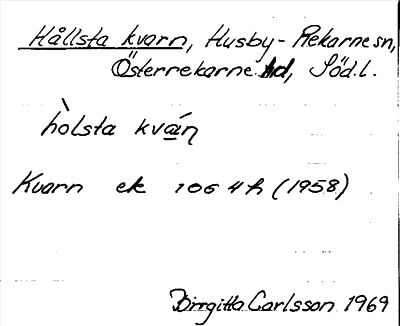 Hållsta kvarn, Husby-Rekarne sn,
Österrekarne hd, Söd.l.
hòlsta kvá̱ɳ
Kvarn ek 106 4h (1958)
Birgitta Carlsson 1969